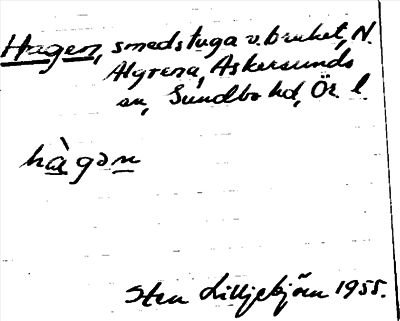 Hagen, smedstuga v. bruket, N.
Algrena, Askersunds
sn, Sundbo hd, Ör l.
hàgən
Sten Lilljebjörn 1955.